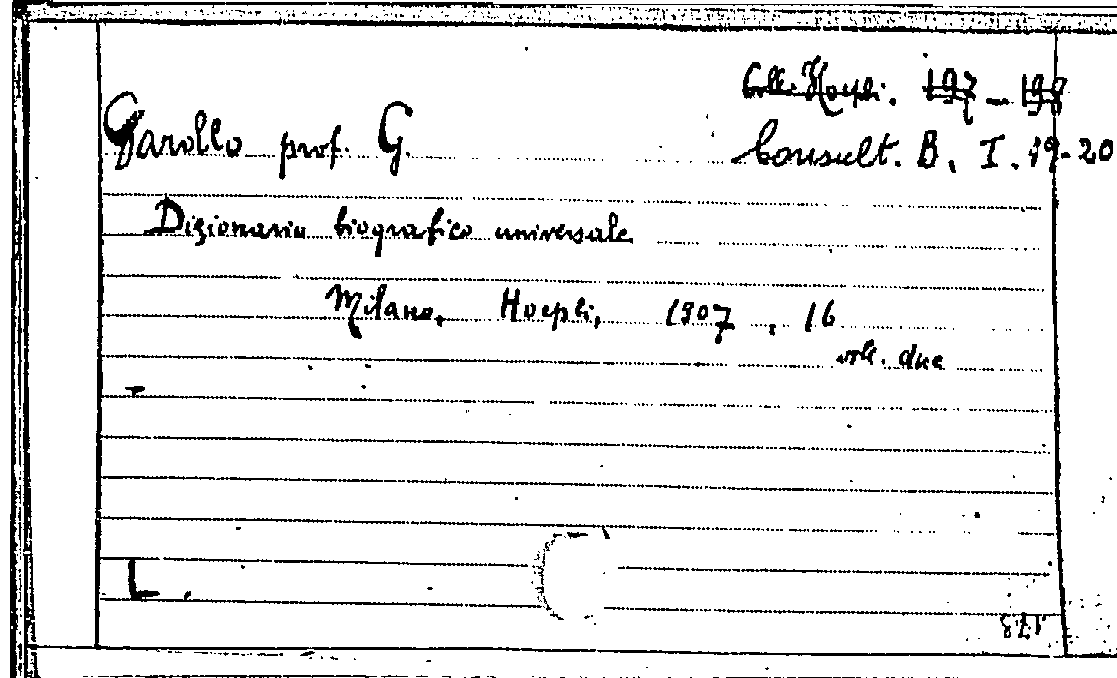 Coll. Hoepli. 197 - 198
Garollo prof. G.
Consult. B. I. 19-20
Dizionario biografico universale
Milano, Hoepli, 1907, 16
voll. due
L.